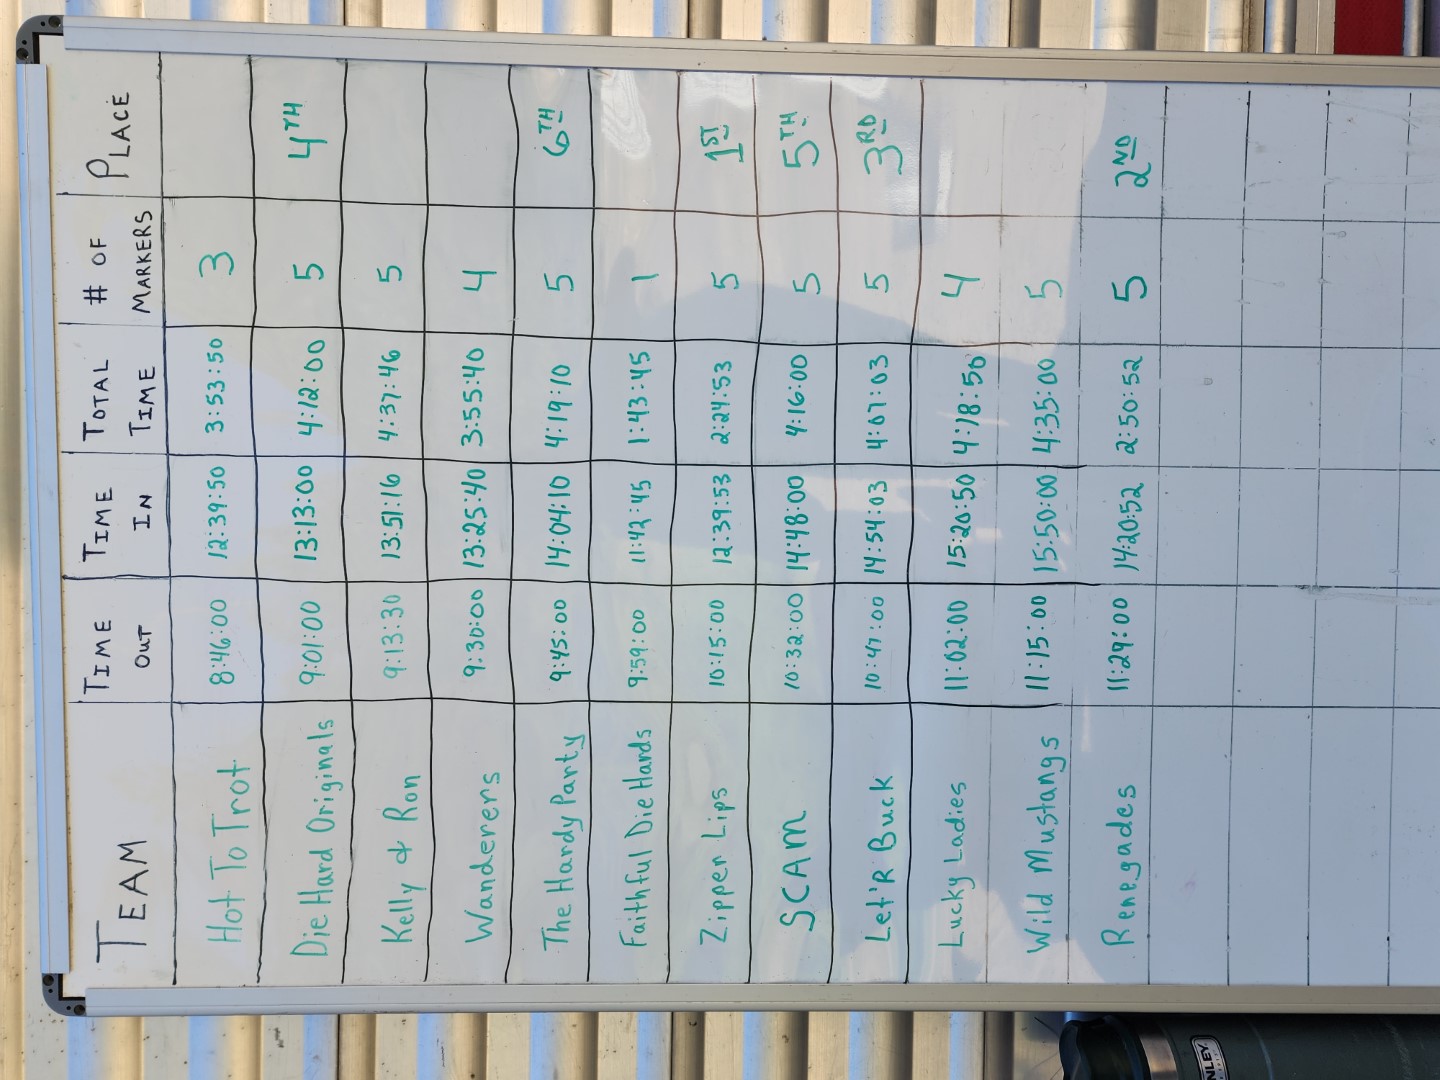 TEAM TIME OUT TIME IN TOTAL TIME # OF MARKERS PLACE
Hot To Trot 8:46:00 12:39:50 3:53:50 3
Die Hard Originals 9:01:00 13:13:00 4:12:00 5 4TH
Kelly & Ron 9:13:30 13:51:16 4:37:46 5
Wanderers 9:30:00 13:25:40 3:55:40 4
The Hardy Party 9:45:00 14:04:10 4:19:10 5 6TH
Faithful Die Hards 9:59:00 11:42:45 1:43:45 1
Zipper Lips 10:15:00 12:39:53 2:24:53 5 1ST
SCAM 10:32:00 14:48:00 4:16:00 5 5TH
Let'R Buck 10:47:00 14:54:03 4:07:03 5 3RD
Lucky Ladies 11:02:00 15:20:50 4:18:50 4
Wild Mustangs 11:15:00 15:50:00 4:35:00 5
Renegades 11:29:00 14:20:52 2:50:52 5 2ND